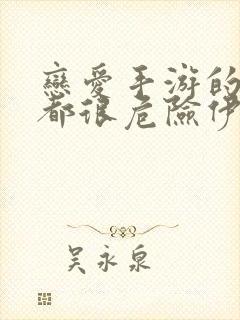 戀愛手游的
都很危險伊
吴永泉